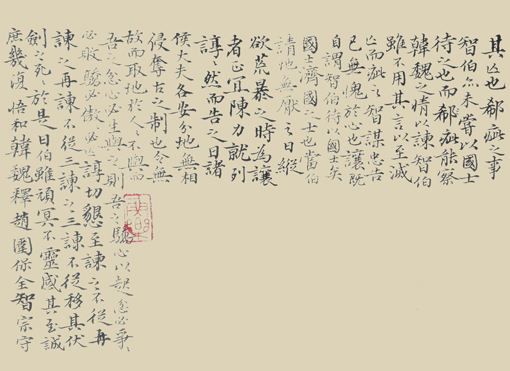 其亡也郗疵之事
智伯亦未嘗以國士
待之也而郗疵能察
韓魏之情以諫智伯
雖不用其言以至滅
亡而疵之智謀忠告
已無愧於心也讓既
自謂智伯待以國士矣
國士濟國之士也當伯
請地無厭之日縱
欲荒暴之時為讓
者正宜陳力就列
諄〻然而告之日諸
侯大夫各安分地無相
侵奪古之制也今無
故而取地於人〻不與而
吾之忿心必生與之則吾之驕心以起忿必爭〻
必敗驕必傲〻必亡諄切懇至諫之不從再
諫之再諫不從三諫之三諫不從移其伏
劍之死〻於是日伯雖頑冥不靈感其至誠
庶幾復悟和韓魏釋趙圍保全智宗守